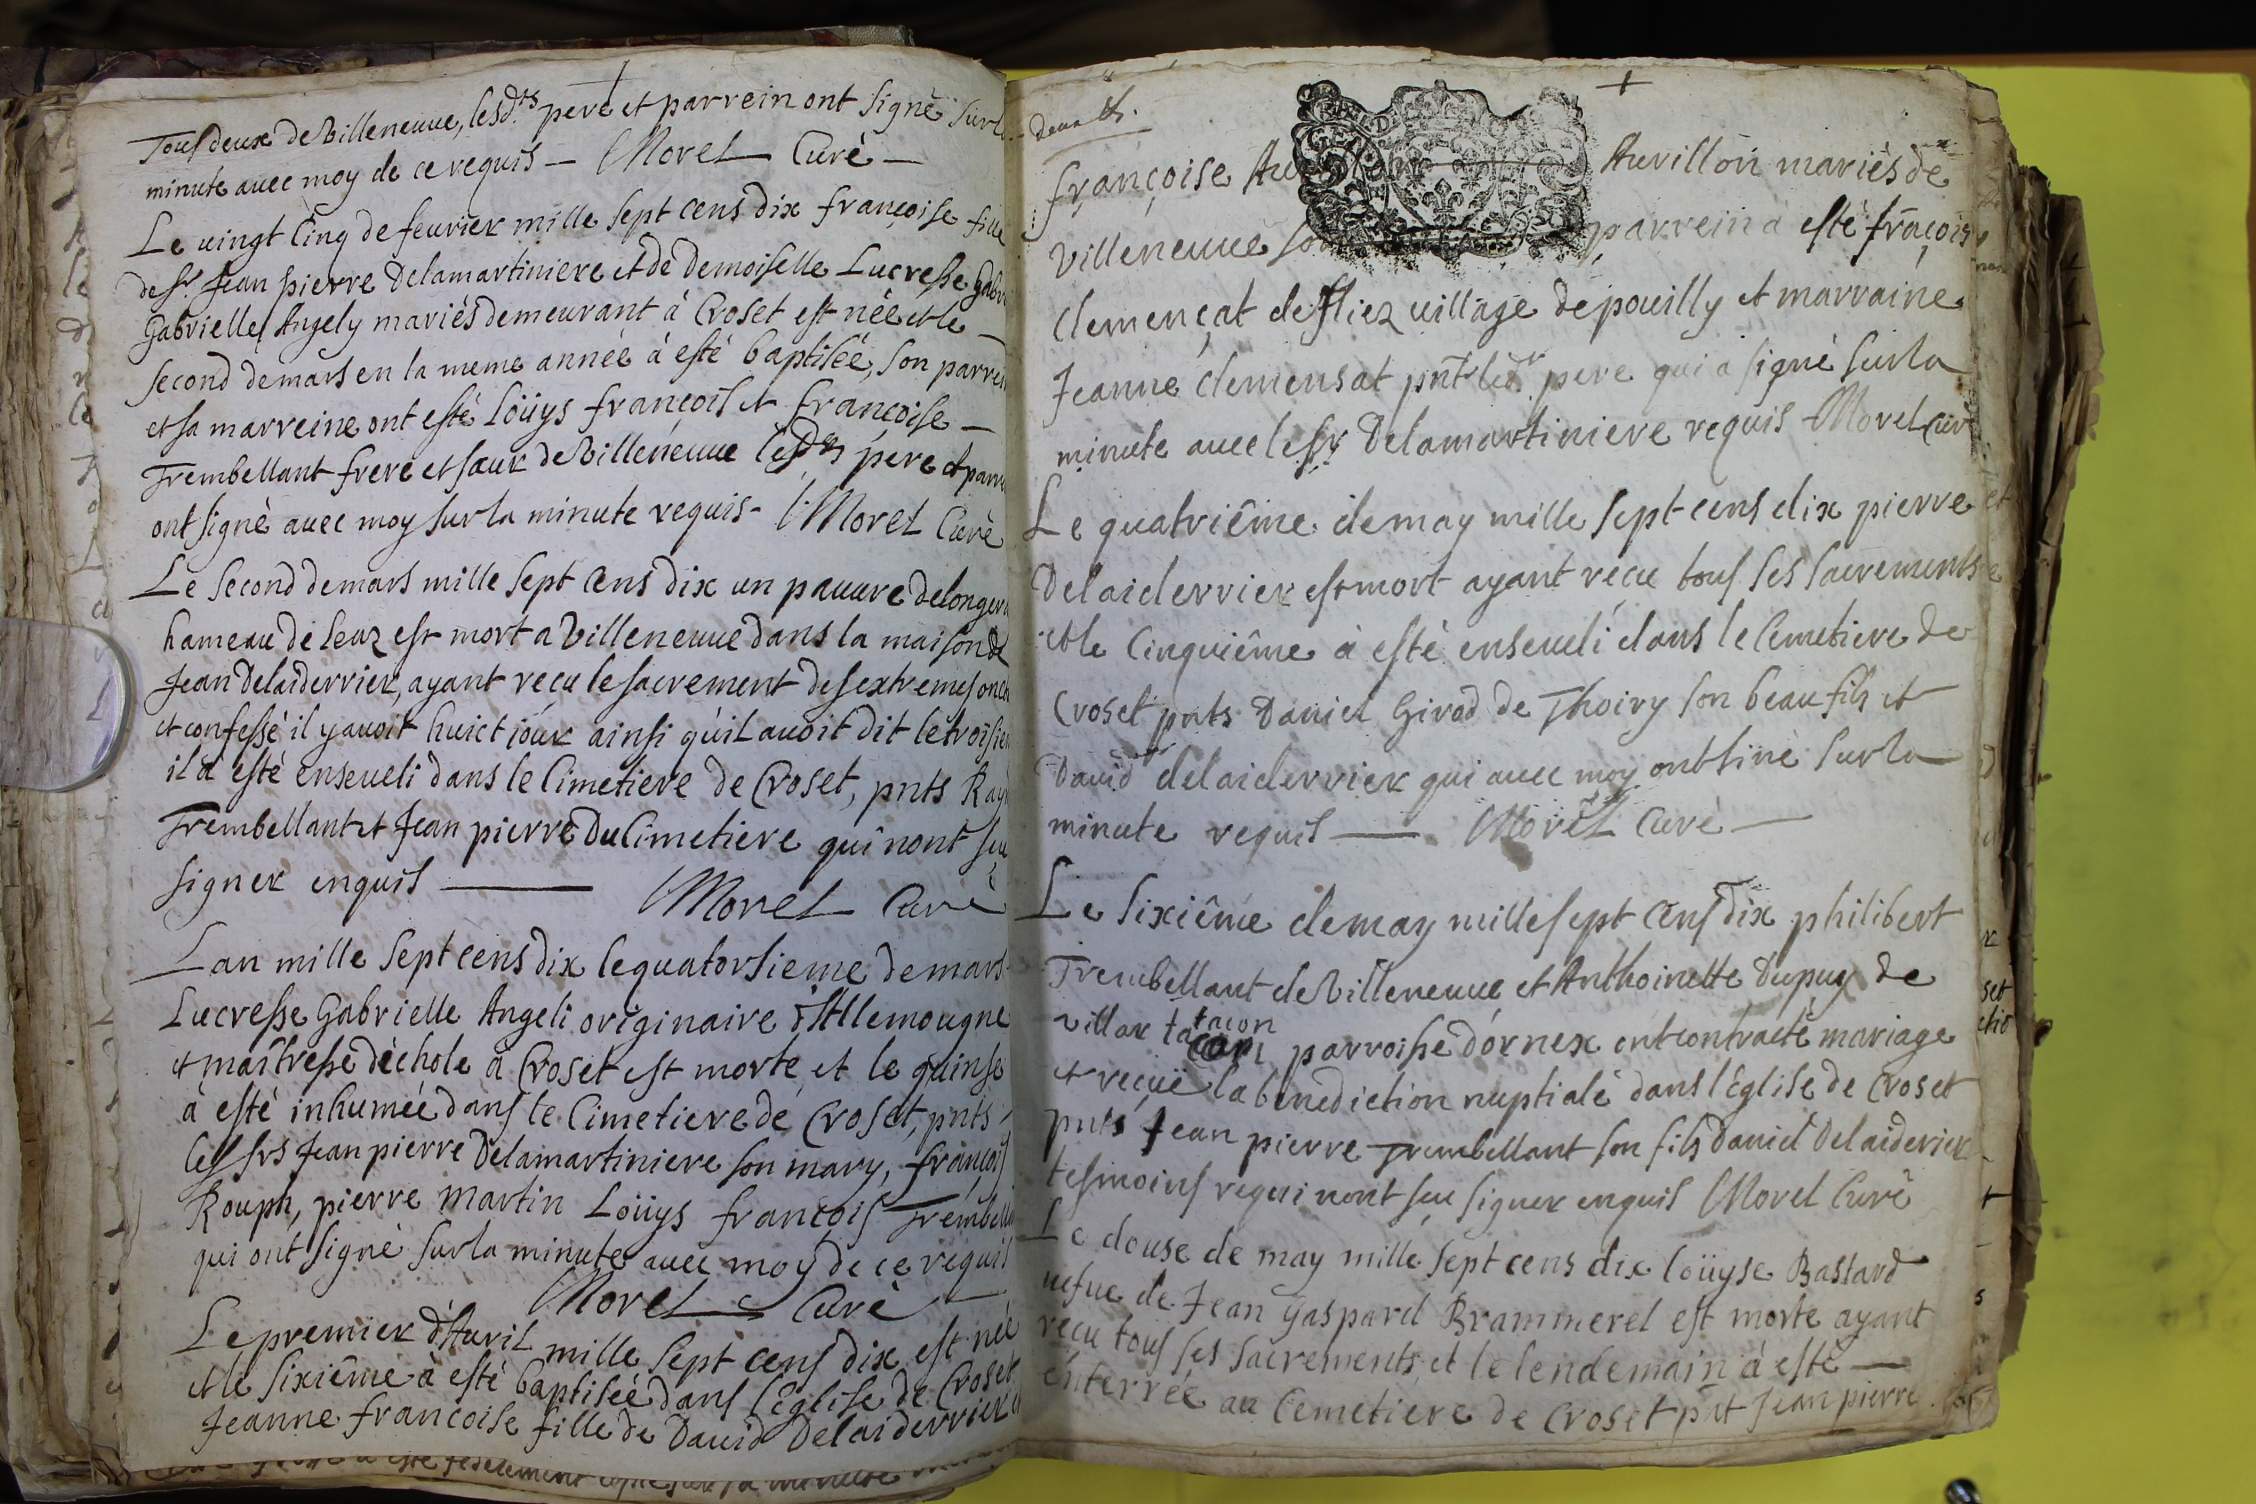 Tous deux de Villeneuve, lesd.ts pere et parrein ont signè sur la
minute avec moy de ce requis — Morel Curè —
Le vingt Cinq de feurier mille sept cens dix françoise fille
de Sr. Jean pierre Delamartiniere et de demoiselle Lucresse Gabri
Gabrielle Angely mariès demeurant à Croset est nèe et le —
second de mars en la meme annèe à estè baptisèe, son parrein
et sa marreine ont estè Loüys françois et françoise —
Trembellant frere et sœur de Villeneuve lesdts pere et parre
ont signè avec moy sur la minute requis - Morel Curè
Le second de mars mille sept cens dix un pauvre de longer
hameau de leaz est mort a Villeneuve dans la maison de
Jean Delaiderrier, ayant reçu le sacrement des extremes onct
et confessè il y avoit huict jour ainsi qu'il avoit dit le troisiem
il à estè enseveli dans le Cimetiere de Croset, pnts Ray
Trembellant et Jean pierre Du Cimetiere qui n'ont sçu
signer enquis — Morel Curè
L'an mille sept cens dix le quatorsieme de mars
Lucresse Gabrielle Angeli originaire d'Allemougne
et maîtresse d'èchole à Croset est morte et le quinse
à estè inhumèe dans le Cimetiere de Croset, pnts
les srs Jean pierre Delamartiniere son mary, françois
Rouph, pierre martin Loüys françois Trembella
qui ont signè sur la minute avec moy de ce requis
Morel Curè —
Le premier d'Avril mille sept cens dix est nèe
et le sixiême à estè baptisèe dans l'èglise de Croset
Jeanne françoise fille de David Delaiderrier et
françoise Auvillon mariès de
Villeneuve son parrein à estè françois
Clemençat de fliez village de pouilly et marraine
Jeanne Clemensat pnt led. pere qui à signè sur la
minute avec le sr Delamartiniere requis Morel Cur
Le quatriême de may mille sept cens dix pierre
Delaiderrier est mort ayant reçu tous ses sacrements
et le Cinquiême à estè enseveli dans le Cemetiere de
Croset pnts Daniel Girod de Thoiry son beau fils et
David delaiderrier qui avec moy ont sinè sur la
minute requis — Morel Curè —
Le sixiême de may mille sept cens dix philibert
Trembellant de Villeneuve et Anthoinette Dupuy de
villar ta tacon parroisse d'ornex ont contractè mariage
et reçuë la benediction nuptiale dans l'èglise de Croset
pnts Jean pierre Trembellant son fils Daniel Delaiderier
tesmoins requi n'ont sçu signer enquis Morel Curè
Le douse de may mille sept cens dix loüyse Bastard
uefue de Jean Gaspard Brammerel est morte ayant
reçu tous ses sacrements, et le lendemain à estè —
enterrèe au Cemetiere de Croset pnt Jean pierre